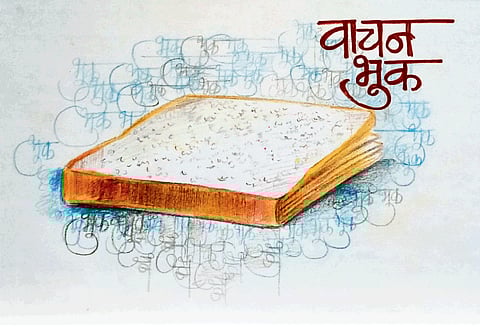 वाचन
भूक